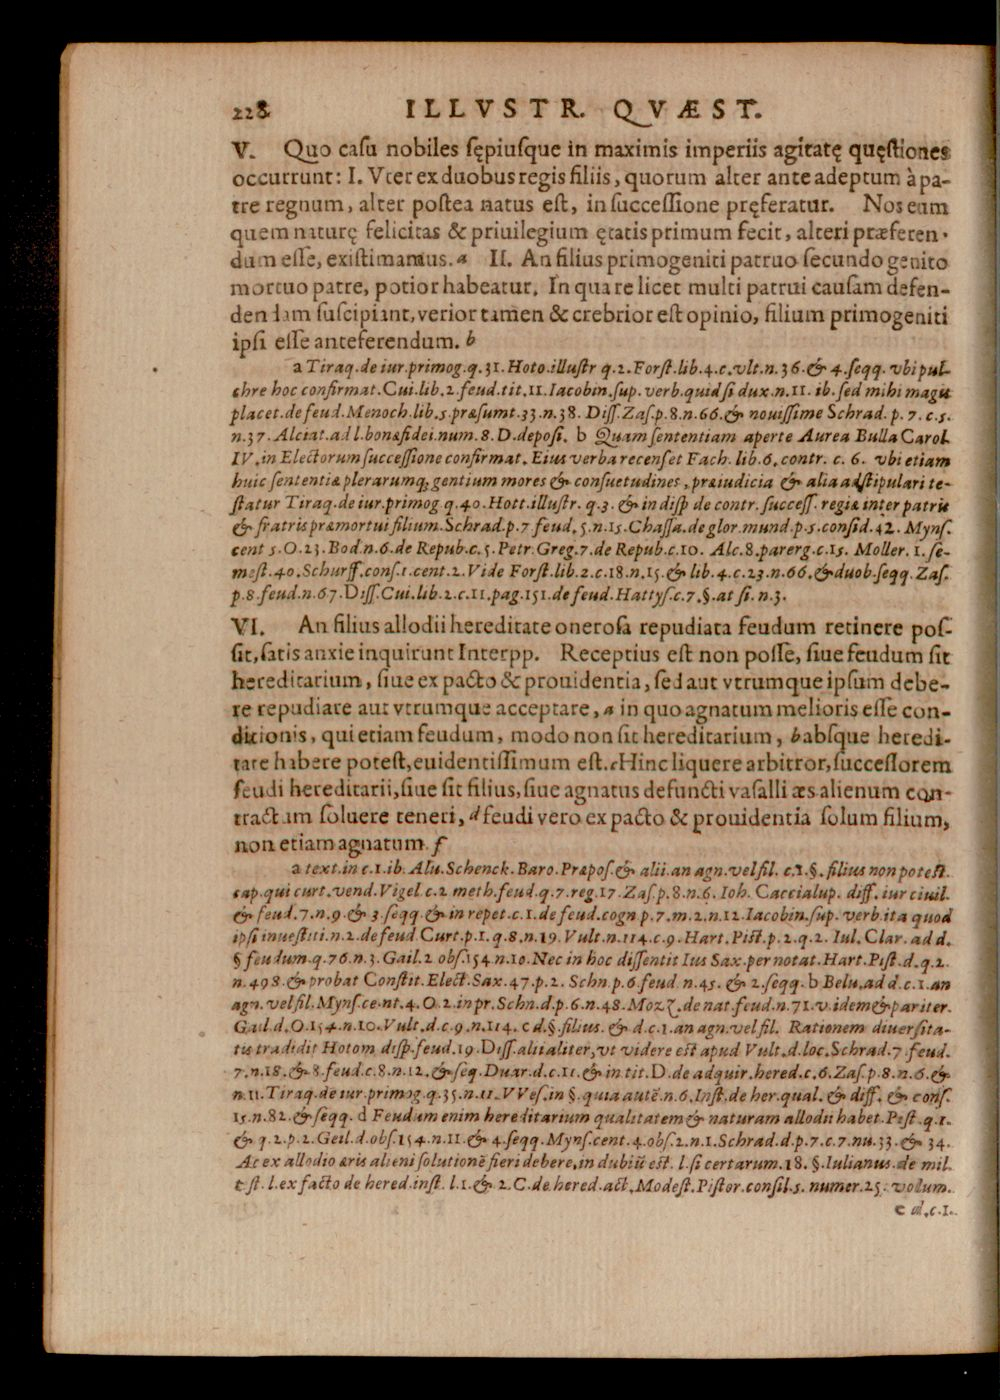 228 ILLVSTR. QVÆST.
V. Quo casu nobiles sępiusque in maximis imperiis agitatę quęstiones
occurrunt: I. Vter ex duobus regis filiis, quorum alter ante adeptum à pa-
tre regnum, alter postea natus est, in successione pręferatur. Nos eum
quem naturę felicitas & priuilegium ętatis primum fecit, alteri præferen-
dum esse, existimamus. a II. An filius primogeniti patruo secundo genito
mortuo patre, potior habeatur. In qua re licet multi patrui causam defen-
dendam suscipiant, verior tamen & crebrior est opinio, filium primogeniti
ipsi esse anteferendum. b
a Tiraq. de iur. primog. q. 31. Hoto. illustr q. 2. Forst. lib. 4. c. vlt. n. 36. & 4. seqq. vbi pul-
chre hoc confirmat. Cui. lib. 2. feud. tit. 11. Iacobin. sup. verb. quid si dux. n. 11. ib. sed mihi magis
placet. de feud. Menoch. lib. 5. præsumt. 33. n. 38. Diss. Zas. p. 8. n. 66. & nouissime Schrad. p. 7. c. 5.
n. 37. Alciat. ad l. bonæ fidei. num. 8. D. deposi. b Quam sententiam aperte Aurea Bulla Carol.
IV. in Electorum successione confirmat. Eius verba recenset Fach. lib. 6. contr. c. 6. vbi etiam
huic sententiæ plerarumq; gentium mores & consuetudines, præiudicia & alia adstipulari te-
statur Tiraq. de iur. primog. q. 40. Hott. illustr. q. 3. & in disp de contr. success. regiæ inter patris
& fratris præmortui filium. Schrad. p. 7. feud. 5. n. 15. Chassa. de glor. mund. p. 5. consid. 42. Myns.
cent 5. O. 23. Bod. n. 6. de Repub. c. 5. Petr. Greg. 7. de Repub. c. 10. Alc. 8. parerg. c. 15. Moller. 1. se-
mest. 40. Schurff. cons. 1. cent. 2. Vide Forst. lib. 2. c. 18. n. 15. & lib. 4. c. 23. n. 66. & duob. seqq. Zas.
p. 8. feud. n. 67. Diss. Cui. lib. 2. c. 11. pag. 151. de feud. Hattys. c. 7. §. at si. n. 3.
VI. An filius allodii hereditate onerosa repudiata feudum retinere pos-
sit, satis anxie inquirunt Interpp. Receptius est non posse, siue feudum sit
hereditarium, siue ex pacto & prouidentia, sed aut vtrumque ipsum debe-
re repudiare aut vtrumque acceptare, a in quo agnatum melioris esse con-
ditionis, qui etiam feudum, modo non sit hereditarium, b absque heredi-
tate habere potest, euidentissimum est. c Hinc liquere arbitror, successorem
feudi hereditarii, siue sit filius, siue agnatus defuncti vasalli æs alienum con-
tractum soluere teneri, d feudi vero ex pacto & prouidentia solum filium,
non etiam agnatum. f
a text. in c. 1. ib. Alu. Schenck. Baro. Præpos. & alii. an agn. vel fil. c. 1. §. filius non potest.
cap. qui curt. vend. Vigel c. 2 meth. feud. q. 7. reg. 17. Zas. p. 8. n. 6. Ioh. Caccialup. diff. iur ciuil.
& feud. 7. n. 9. & 3. seqq. & in repet. c. 1. de feud. cogn p. 7. m. 2. n. 12. Iacobin. sup. verb. ita quod
ipsi inuestiti. n. 2. de feud Curt. p. 1. q. 8. n. 19. Vult. n. 114. c. 9. Hart. Pist. p. 2. q. 2. Iul. Clar. ad d.
§ feudum. q. 76. n. 3. Gail. 2 obs. 154. n. 10. Nec in hoc dissentit Ius Sax. per notat. Hart. Pist. d. q. 2.
n. 498. & probat Constit. Elect. Sax. 47. p. 2. Schn. p. 6. feud n. 45. & 2. seqq. b Belu. ad d. c. 1. an
agn. vel fil. Myns. cent. 4. O. 2. in pr. Schn. d. p. 6. n. 48. Moz. de nat. feud. n. 71. v. idem & pariter.
Gail. d. O. 154. n. 10. Vult. d. c. 9. n. 114. c d. §. filius. & d. c. 1. an agn. vel fil. Rationem diuersita-
tis tradidit Hotom disp. feud. 19. Diss. alii aliter, vt videre est apud Vult. d. loc. Schrad. 7. feud.
7. n. 18. & 8. feud. c. 8. n. 12. & seq. Duar. d. c. 11. & in tit. D. de adquir. hered. c. 6. Zas. p. 8. n. 6. &
n. 11. Tiraq. de iur. primog. q. 35. n. 11. VVes. in §. quia autē. n. 6. Inst. de her. qual. & diff. & cons.
15. n. 82. & seqq. d Feudum enim hereditarium qualitatem & naturam allodii habet. Pist. q. 1.
& q. 2. p. 2. Geil. d. obs. 154. n. 11. & 4. seqq. Myns. cent. 4. obs. 2. n. 1. Schrad. d. p. 7. c. 7. nu. 33. & 34.
Ac ex allodio æris alieni solutionē fieri debere, in dubiū est. l. si certarum. 18. §. Iulianus. de mil.
test. l. ex facto de hered. inst. l. 1. & 2. C. de hered. act. Modest. Pistor. consil. 5. numer. 25. volum.
c d. c. 1.